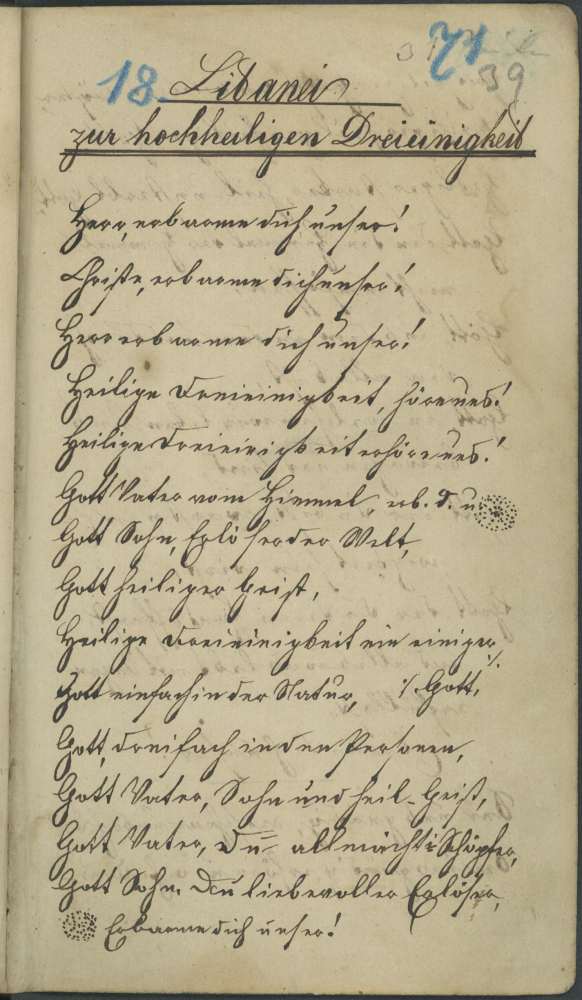 71
39
18. Litanei
zur hochheiligen Dreieinigkeit
Herr, erbarme dich unser!
Christe, erbarme dich unser!
Herr erbarme dich unser!
Heilige Dreieinigkeit, höre uns!
Heilige Dreieinigkeit erhöre uns!
Gott Vater vom Himmel, erb. d. u.
Gott Sohn, Erlöser der Welt,
Gott heiliger Geist,
Heilige Dreieinigkeit ein einiger
:/: Gott,
Gott einfach in der Natur,
Gott, dreifach in den Personen,
Gott Vater, Sohn und heil. Geist,
Gott Vater, Du allmächt: Schöpfer,
Gott Sohn, Du liebevoller Erlöser,
Erbarme dich unser!